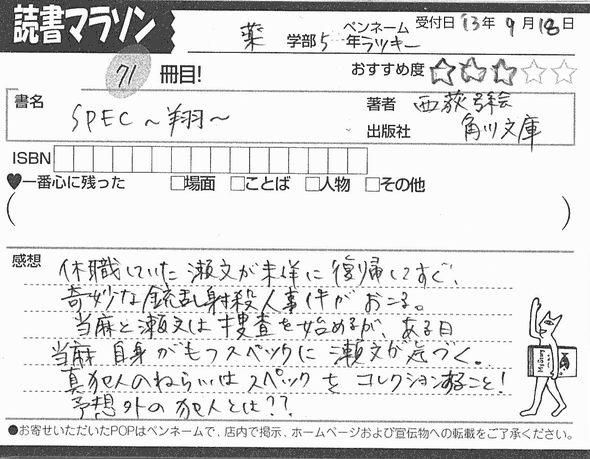 読書マラソン
薬 学部 5 年 ペンネーム ラッキー 受付日 '13年 9月 18日
71 冊目! おすすめ度 ☆☆☆☆☆
書名 SPEC～翔～
著者 西荻弓絵
出版社 角川文庫
ISBN
♥一番心に残った □場面 □ことば □人物 □その他
( )
感想
休職していた瀬文が未詳に復帰してすぐ、
奇妙な銃乱射殺人事件がおこる。
当麻と瀬文は捜査を始めるが、ある日
当麻自身がもつスペックに瀬文が気づく。
真犯人のねらいはスペックをコレクションすること!
予想外の犯人とは??
●お寄せいただいたPOPはペンネームで、店内で掲示、ホームページおよび宣伝物への転載をご了承ください。